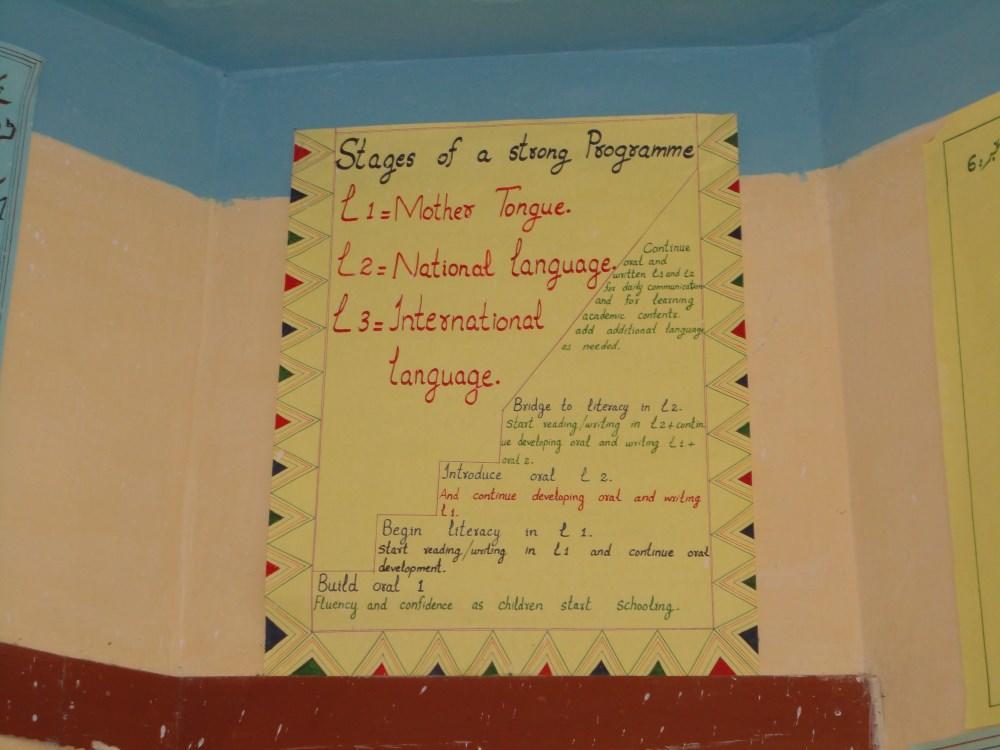 Stages of a strong Programme
L1=Mother Tongue.
L2=National language.
L3=International
language.
Continue
oral and
written L1 and L2
for daily communication
and for learning
academic contents.
add additional language
as needed.
Bridge to literacy in L2.
Start reading/writing in L2+contin
ue developing oral and writing L1+
oral 2.
Introduce oral L 2.
And continue developing oral and writing
L1.
Begin literacy in L 1.
start reading/writing in L1 and continue oral
development.
Build oral 1
Fluency and confidence as children start schooling.